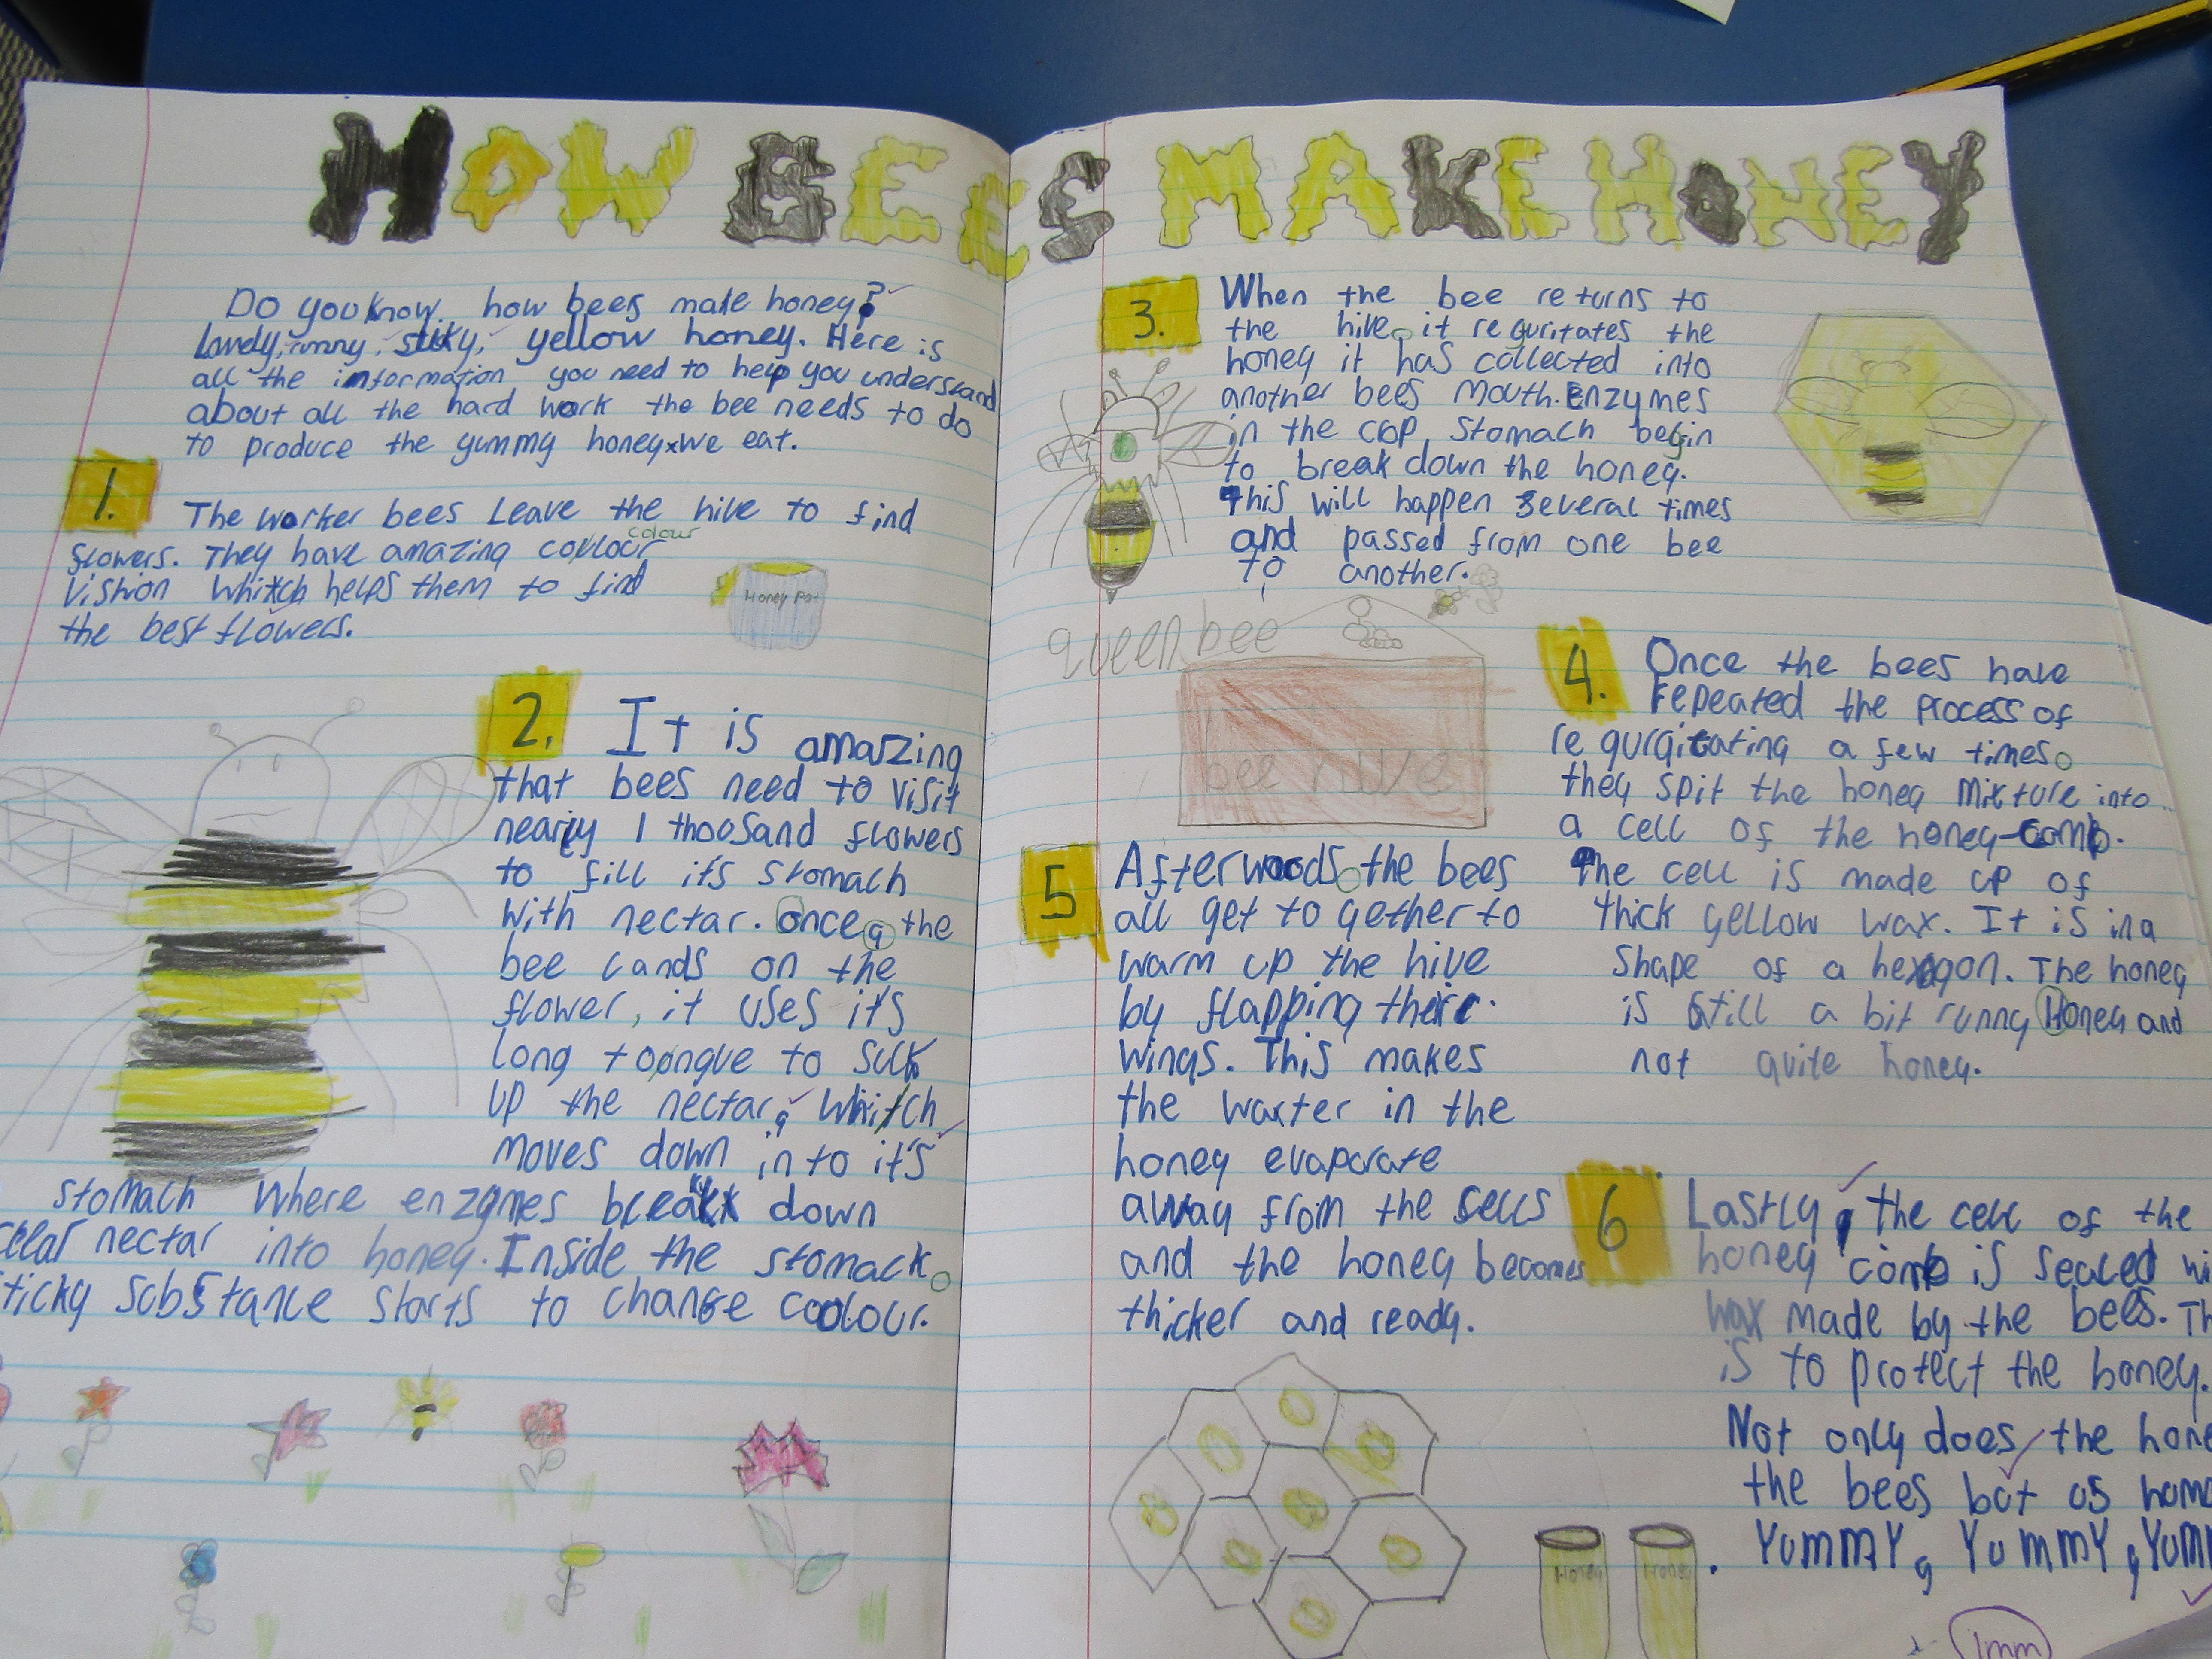 HOW BEES MAKE HONEY
Do you know how bees make honey?
Lovely, runny, sticky, yellow honey. Here is
all the information you need to help you understand
about all the hard work the bee needs to do
to produce the yummy honey we eat.
1. The worker bees Leave the hive to find
flowers. They have amazing coulour
colour
Vishion Whitch helps them to find
the best flowers.
Honey Pot
2. It is amazing
that bees need to visit
nearly 1 thousand flowers
to fill it's stomach
with nectar. Once, the
bee lands on the
flower, it uses it's
long toongue to suck
up the nectar, whitch
moves down into it's
stomach Where enzymes break down
nectar into honey. Inside the stomack
sticky substance starts to change coolour.
3. When the bee returns to
the hive, it reguritates the
honey it has collected into
another bees mouth. Enzymes
in the crop, stomach begin
to break down the honey.
This will happen several times
and passed from one bee
to another.
queen bee
bee hive
4. Once the bees have
repeated the process of
regurgitating a few times,
they spit the honey mixture into
a cell of the honey-comb.
The cell is made up of
thick yellow wax. It is in a
shape of a hexagon. The honey
is still a bit runny Honey and
not quite honey.
5 Afterwoods, the bees
all get to gether to
warm up the hive
by flapping their
wings. This makes
the waxter in the
honey evaporate
away from the cells
and the honey becomes
thicker and ready.
6 Lastly, the cell of the
honey comb is sealed wi
wax made by the bees. Th
is to protect the honey.
Not only does the hone
the bees but us huma
Yummy, Yummy, Yumm
Honey
Honey
1mm